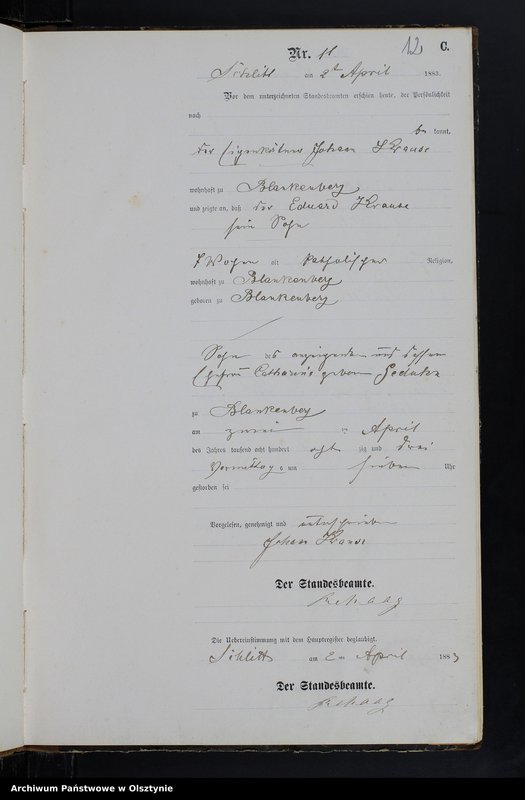 12 C.
Nr. 11
Schlitt am 2t April 1883.
Vor dem unterzeichneten Standesbeamten erschien heute, der Persönlichkeit
nach
be kannt,
der Eigenkäthner Johann Krause
wohnhaft zu Blankenberg
und zeigte an, daß der Eduard Krause
sein Sohn
7 Wochen alt katholischer Religion,
wohnhaft zu Blankenberg
geboren zu Blankenberg
Sohn des anzeigenden und dessen
Ehefrau Catharina geboren
zu Blankenberg
am zwei ten April
des Jahres tausend acht hundert acht zig und drei
Vormittags um sieben Uhr
gestorben sei
Vorgelesen, genehmigt und unterschrieben
Johann Krause
Der Standesbeamte.
Rehaag
Die Uebereinstimmung mit dem Hauptregister beglaubigt.
Schlitt am 2 ten April 1883
Der Standesbeamte.
Rehaag
Archiwum Państwowe w Olsztynie